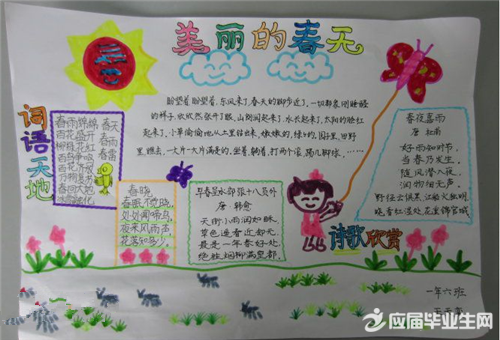 美丽的春天
盼望着盼望着,东风来了,春天的脚步近了,一切都象刚睡醒
的样子,欣欣然张开了眼,山朗润起来了,水长起来了,太阳的脸红
起来了,小草偷偷地从土里钻出来,嫩嫩的,绿绿的,园子里,田野
里,瞧去,一大片一大片满是的,坐着,躺着,打两个滚,踢几脚球……
词语天地
春雨绵绵
百花盛开
柳绿花红
百鸟争鸣
百花齐放
万物复苏
春回大地
春天
春雨
春雷
春晓
春眠不觉晓,
处处闻啼鸟,
夜来风雨声,
花落知多少。
早春呈水部张十八员外
唐 韩愈
天街小雨润如酥,
草色遥看近却无。
最是一年春好处,
绝胜烟柳满皇都。
诗歌欣赏
春夜喜雨
唐 杜甫
好雨知时节,
当春乃发生。
随风潜入夜,
润物细无声。
野径云俱黑,江船火独明。
晓看红湿处,花重锦官城。
一年六班
应届毕业生网